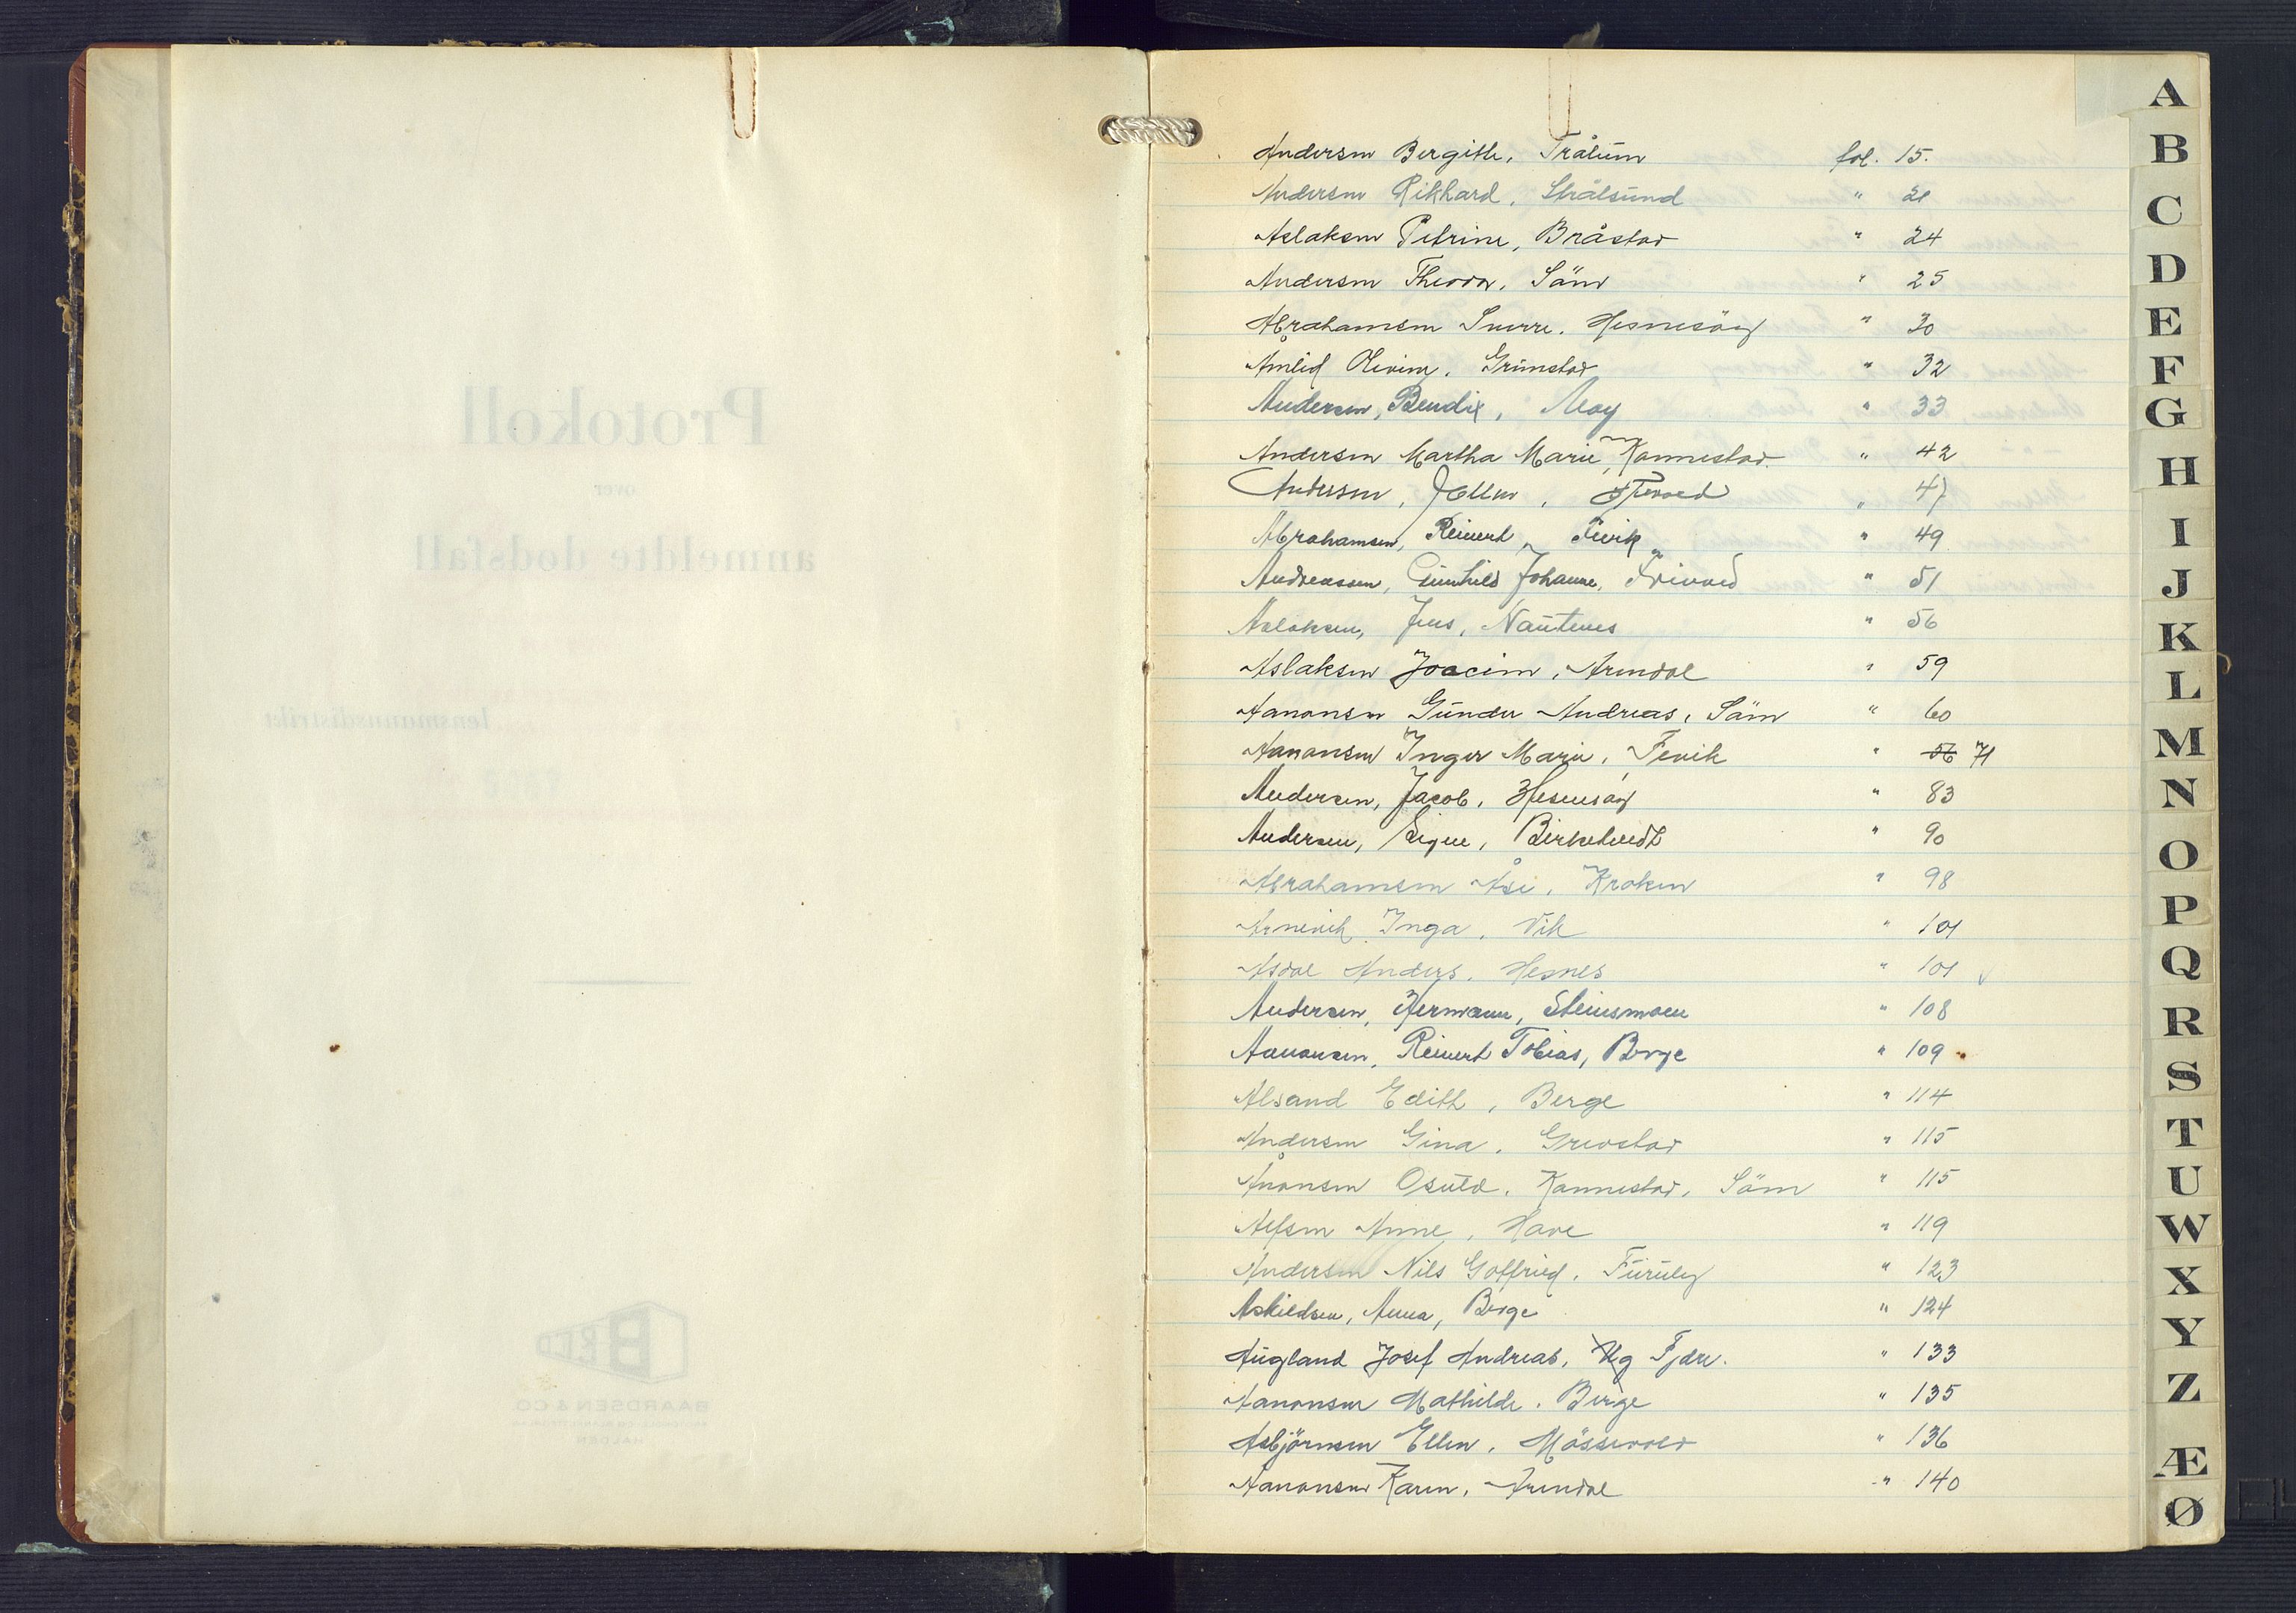 Protokoll
over
anmeldte dødsfall
i lensmannsdistrikt
BAARDSEN & CO
HALDEN
Andersen Bergithe, Trålum fol. 15.
Andersen Rikhard, Strålsund " 21
Aslaksen Petrine, Bråstad " 24
Andersen Theodor, Söm " 25
Abrahamsen Sverre, Hesnesöy " 30
Åmlid Olivine, Grimstad " 32
Andersen, Bendix, Moy " 33
Andersen Martha Marie, Kannestad " 42
Andersen, Ellen, " 47
Abrahamsen, Reinert, Fevik " 49
Andreassen, Gunhild Johanne, " 51
Aslaksen, Jens, Nautenes " 56
Aslaksen Joacim, Arendal " 59
Aanonsen Gunder Andreas, Söm " 60
Aanonsen Inger Marie, Fevik " 56 71
Andersen, Jacob, Hesnesöy " 83
Andersen, Signe, Birketvedt " 90
Abrahamsen Åse, Kroken " 98
Arnevik Inga, Vik " 101
Asdal Anders, Hesnes " 101
Andersen, Hermann, Steinsmoen " 108
Aanonsen, Reinert Tobias, Berge " 109
Alsand Edith, Berge " 114
Andersen Gina, Grevstad " 115
Ånonsen Osuld, Kannestad, Söm " 115
Alfsen Anne, Have " 119
Andersen Nils Gotfried, Furuly " 123
Askildsen, Anna, Berge " 124
Augland Josef Andreas, Fjære. " 133
Aanonsen Mathilde, Berge " 135
Asbjörnsen Ellen, Mössevold " 136
Aanonsen Karen, Arendal " 140
A
B
C
D
E
F
G
H
I
J
K
L
M
N
O
P
Q
R
S
T
U
W
X
Y
Z
Æ
Ø